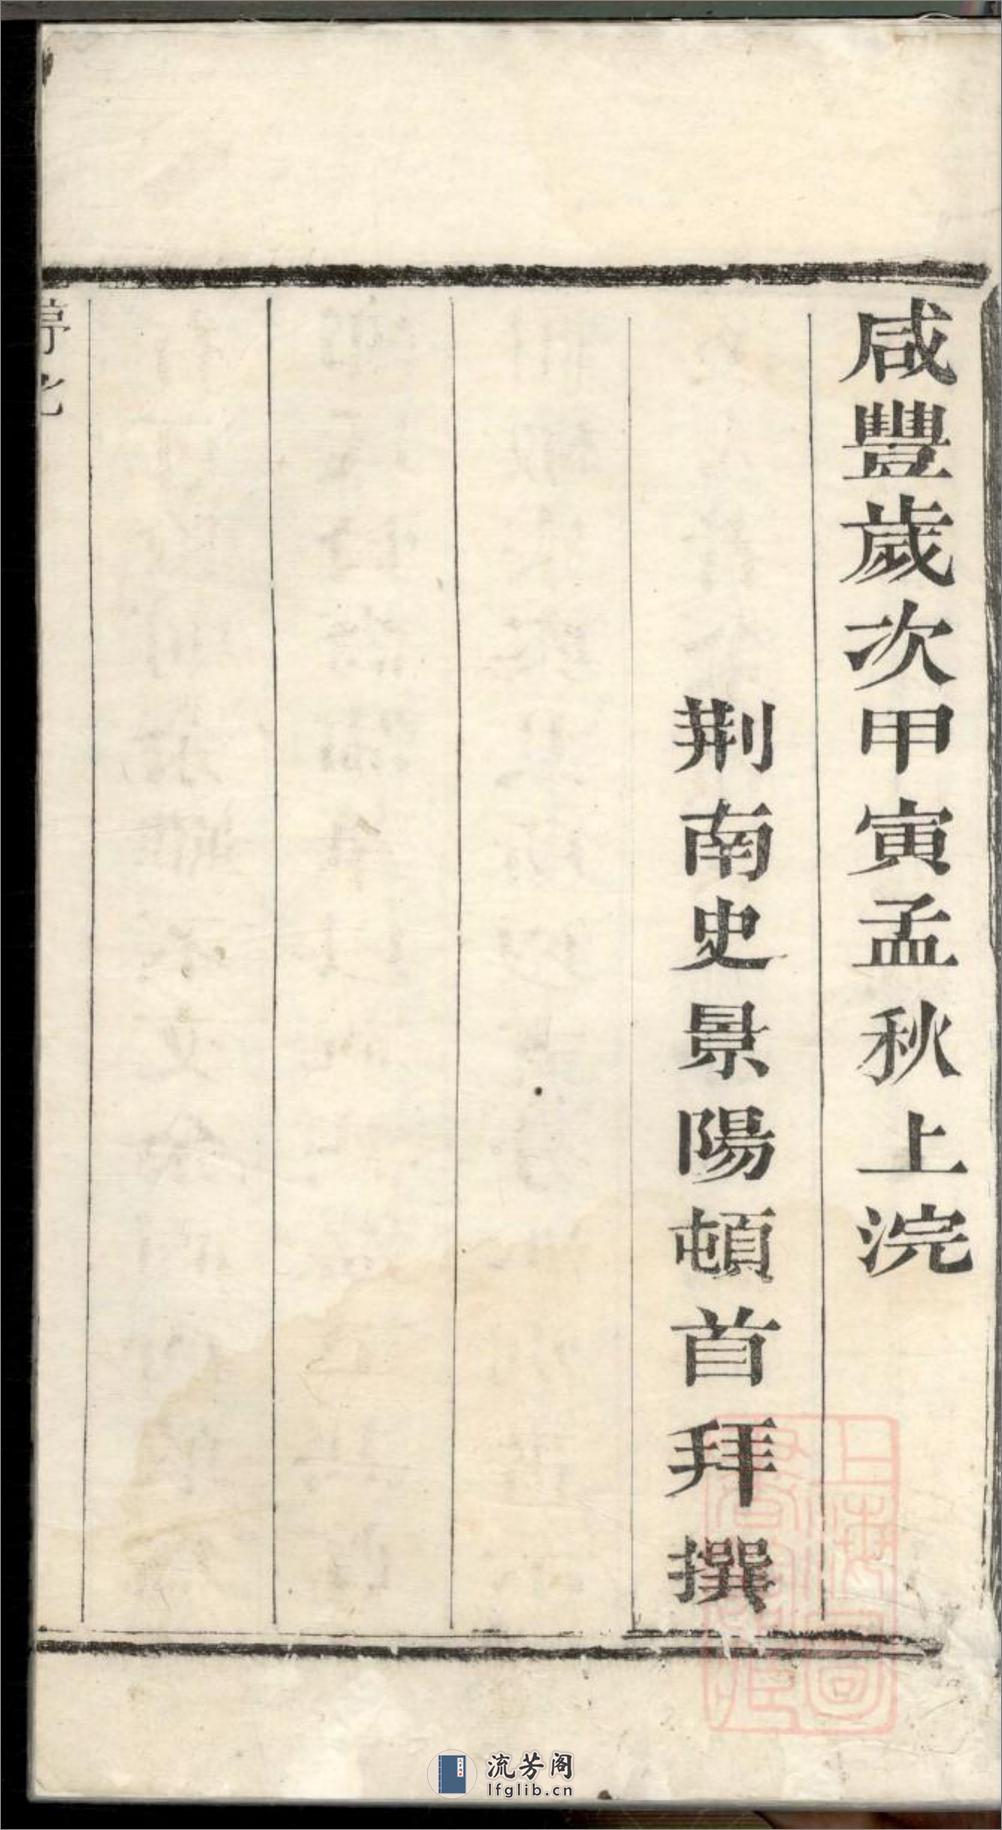 咸豐歲次甲寅孟秋上浣
荆南史景陽頓首拜撰
流芳阁
lfglib.cn